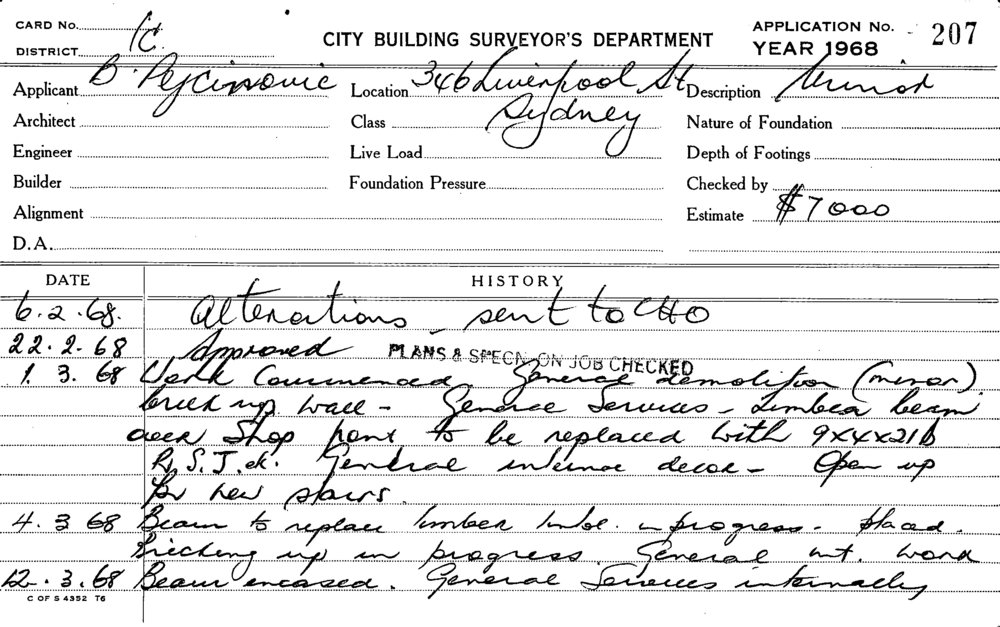 CARD No. 1C.
DISTRICT
CITY BUILDING SURVEYOR'S DEPARTMENT
APPLICATION No. 207
YEAR 1968
Applicant B. Pejcinovic Location 346 Liverpool St Description Minor
Sydney
Architect Class Nature of Foundation
Engineer Live Load Depth of Footings
Builder Foundation Pressure Checked by
Alignment Estimate $7000
D.A.
DATE HISTORY
6.2.68. Alterations - sent to CHO
22.2.68 Approved PLANS & SPECN. ON JOB CHECKED
1.3.68 Work Commenced General demolition (minor).
brick up wall - General Services - timber beam
over Shop front to be replaced with 9x4x21lb
R.S.J. ok. General internal decor - Open up
for new stairs.
4.3 68 Beam to replace timber in progress - placed.
Bricking up in progress General int. work
12.3.68 Beam encased. General Services internally
C OF S 4352 T6